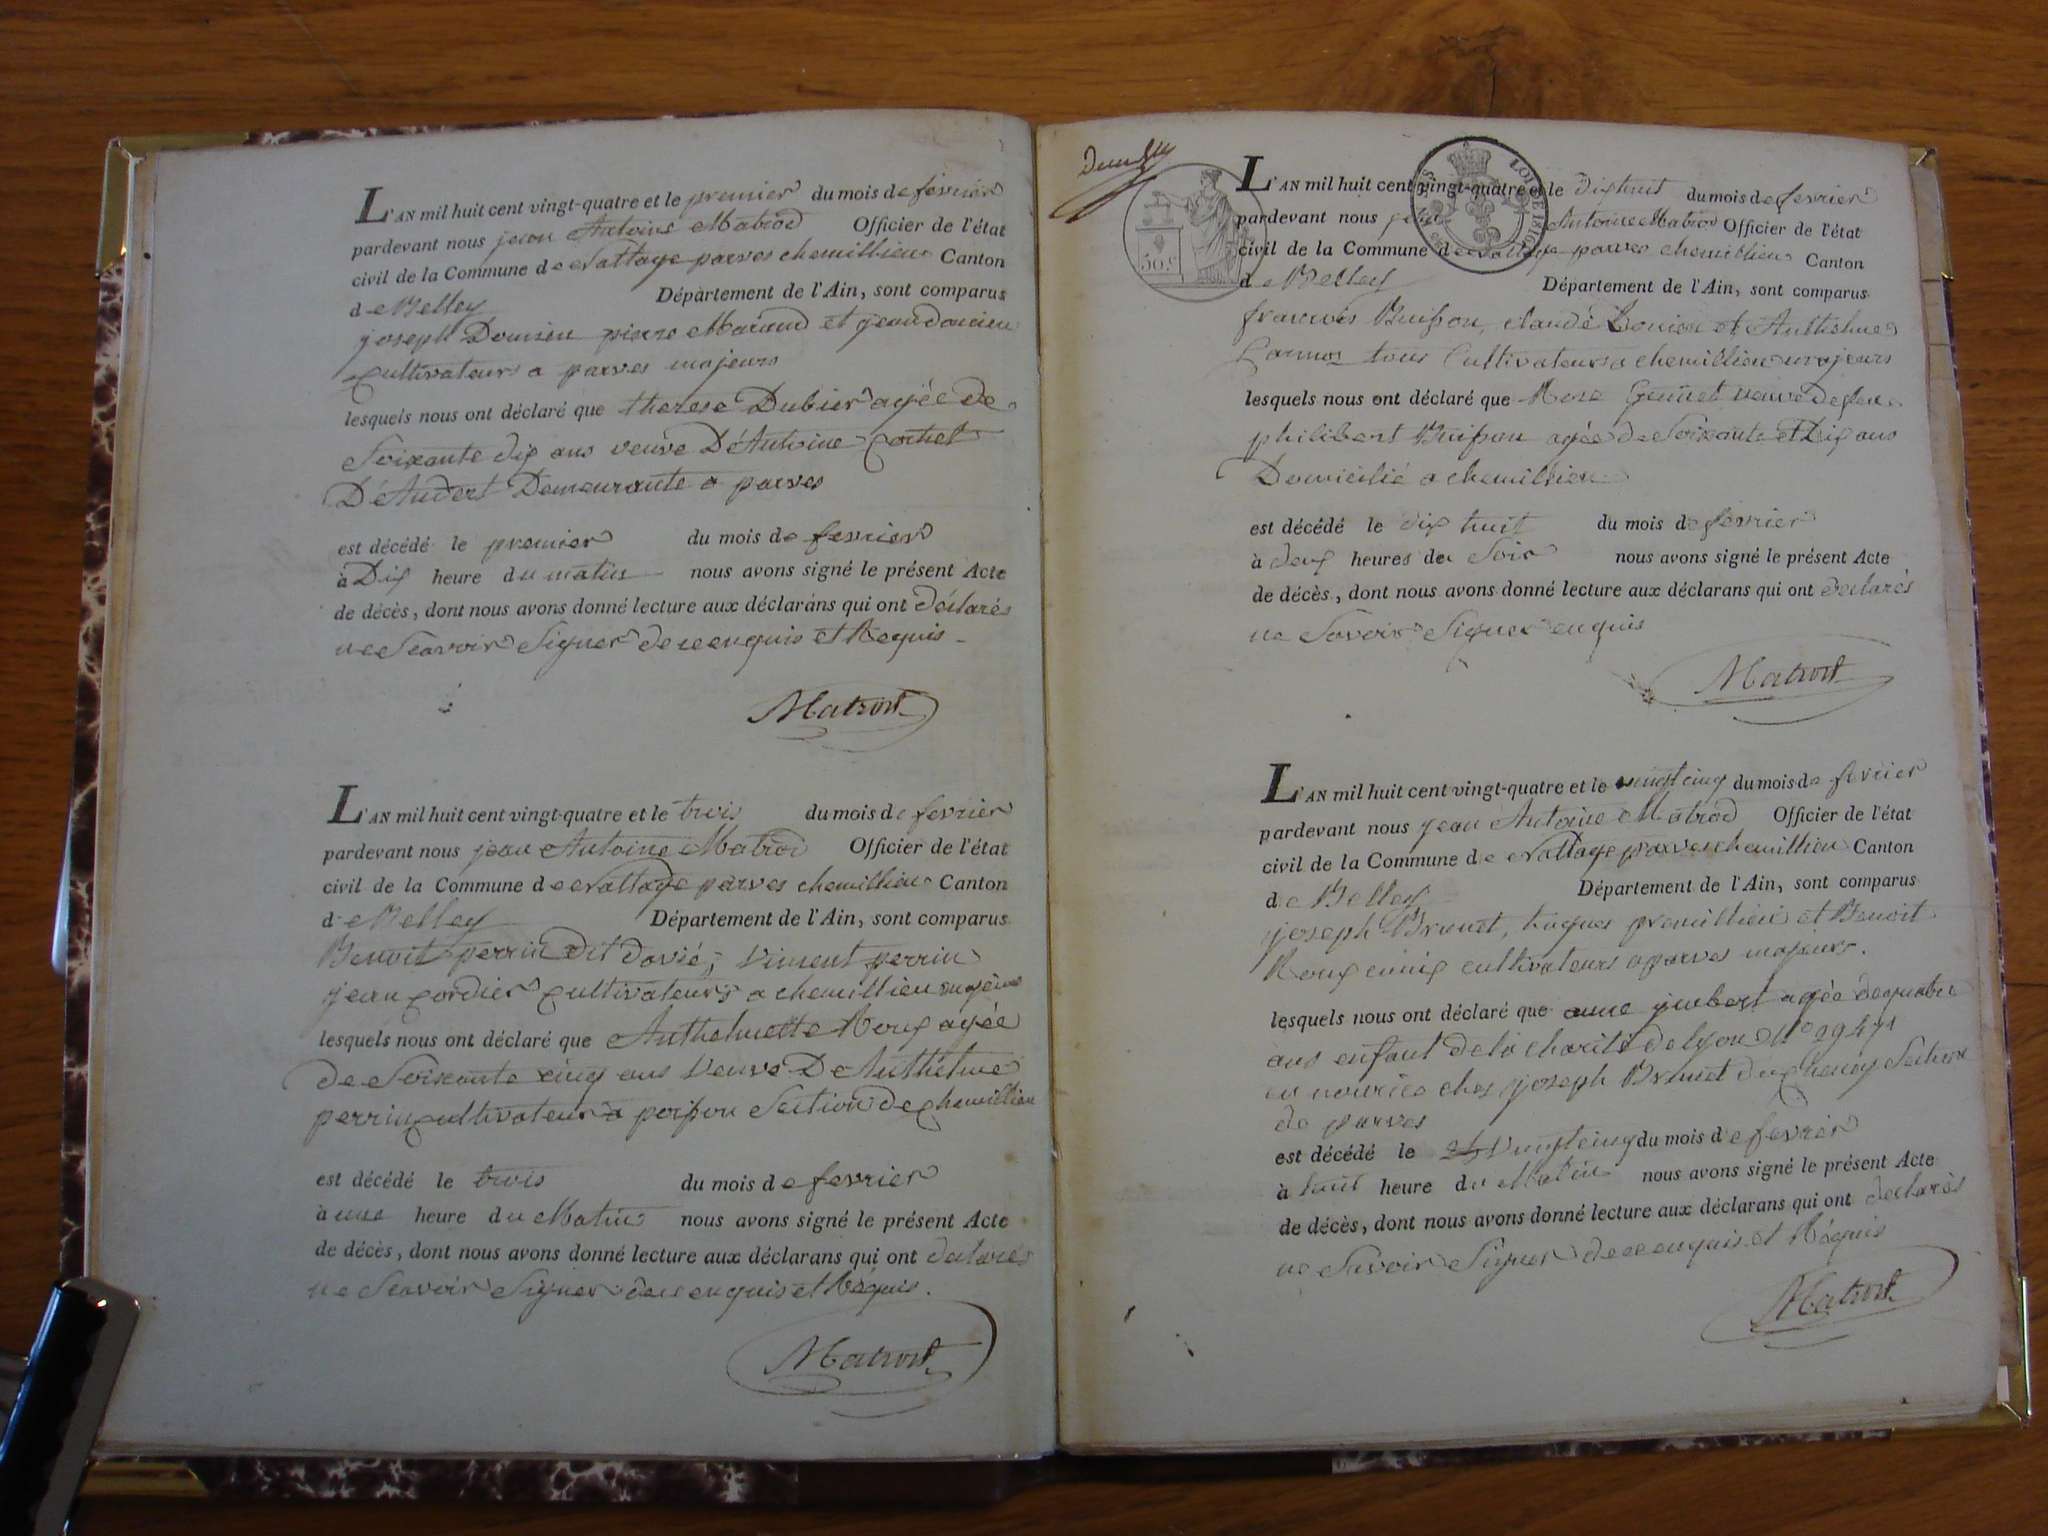 L'AN mil huit cent vingt-quatre et le premier du mois de fevrier
pardevant nous jean Antoine Matrod Officier de l'état
civil de la Commune de Nattage parves chemillieu Canton
de Belley Département de l'Ain, sont comparus
joseph pierre et jean
cultivateurs a parves majeurs
lesquels nous ont déclaré que therese Dubier agée de
Soixante dix ans veuve D'Antoine
Demeurante a parves
est décédé le premier du mois de fevrier
à Dix heure du matin nous avons signé le présent Acte
de décès, dont nous avons donné lecture aux déclarans qui ont déclarés
ne Scavoir Signer de ce enquis et Requis
Matrod
L'AN mil huit cent vingt-quatre et le trois du mois de fevrier
pardevant nous jean Antoine Matrod Officier de l'état
civil de la Commune de Nattage parves chemillieu Canton
de Belley Département de l'Ain, sont comparus
Benoit perrin dit davié, Vincent perrin
jean cordier cultivateurs a chemillieu majeurs
lesquels nous ont déclaré que Anthelmette Roux agée
de Soixante cinq ans Veuve De Anthelme
perrin cultivateur a poisson Section de chemillieu
est décédé le trois du mois de fevrier
à une heure du Matin nous avons signé le présent Acte
de décès, dont nous avons donné lecture aux déclarans qui ont declarés
ne Scavoir Signer de ce enquis et Réquis.
Matrod
50.c
LOI DE 1816
L'AN mil huit cent vingt-quatre et le dixhuit du mois de fevrier
pardevant nous jean Antoine Matrod Officier de l'état
civil de la Commune de Nattage parves chemillieu Canton
de Belley Département de l'Ain, sont comparus
francois Buisson, claude et Anthelme
tous Cultivateurs a chemillieu majeurs
lesquels nous ont déclaré que Rose veuve de feu
philibert Buisson agée de Soixante et Dix ans
Domicilié a chemillieu
est décédé le dix huit du mois de fevrier
à deux heures du Soir nous avons signé le présent Acte
de décès, dont nous avons donné lecture aux déclarans qui ont declarés
ne Savoir Signer enquis
Matrod
L'AN mil huit cent vingt-quatre et le vingt cinq du mois de fevrier
pardevant nous jean Antoine Matrod Officier de l'état
civil de la Commune de Nattage parves chemillieu Canton
de Belley Département de l'Ain, sont comparus
joseph Brunet, hugues premillieu et Benoit
Roux cultivateurs a parves majeurs.
lesquels nous ont déclaré que anne jmbert agée de quatre
ans enfant de la charité de lyon N° 29471
en nourice chez joseph Brunet Section
de parves
est décédé le vingt cinq du mois de fevrier
à huit heure du Matin nous avons signé le présent Acte
de décès, dont nous avons donné lecture aux déclarans qui ont declarés
ne Savoir Signer de ce enquis et Réquis
Matrod